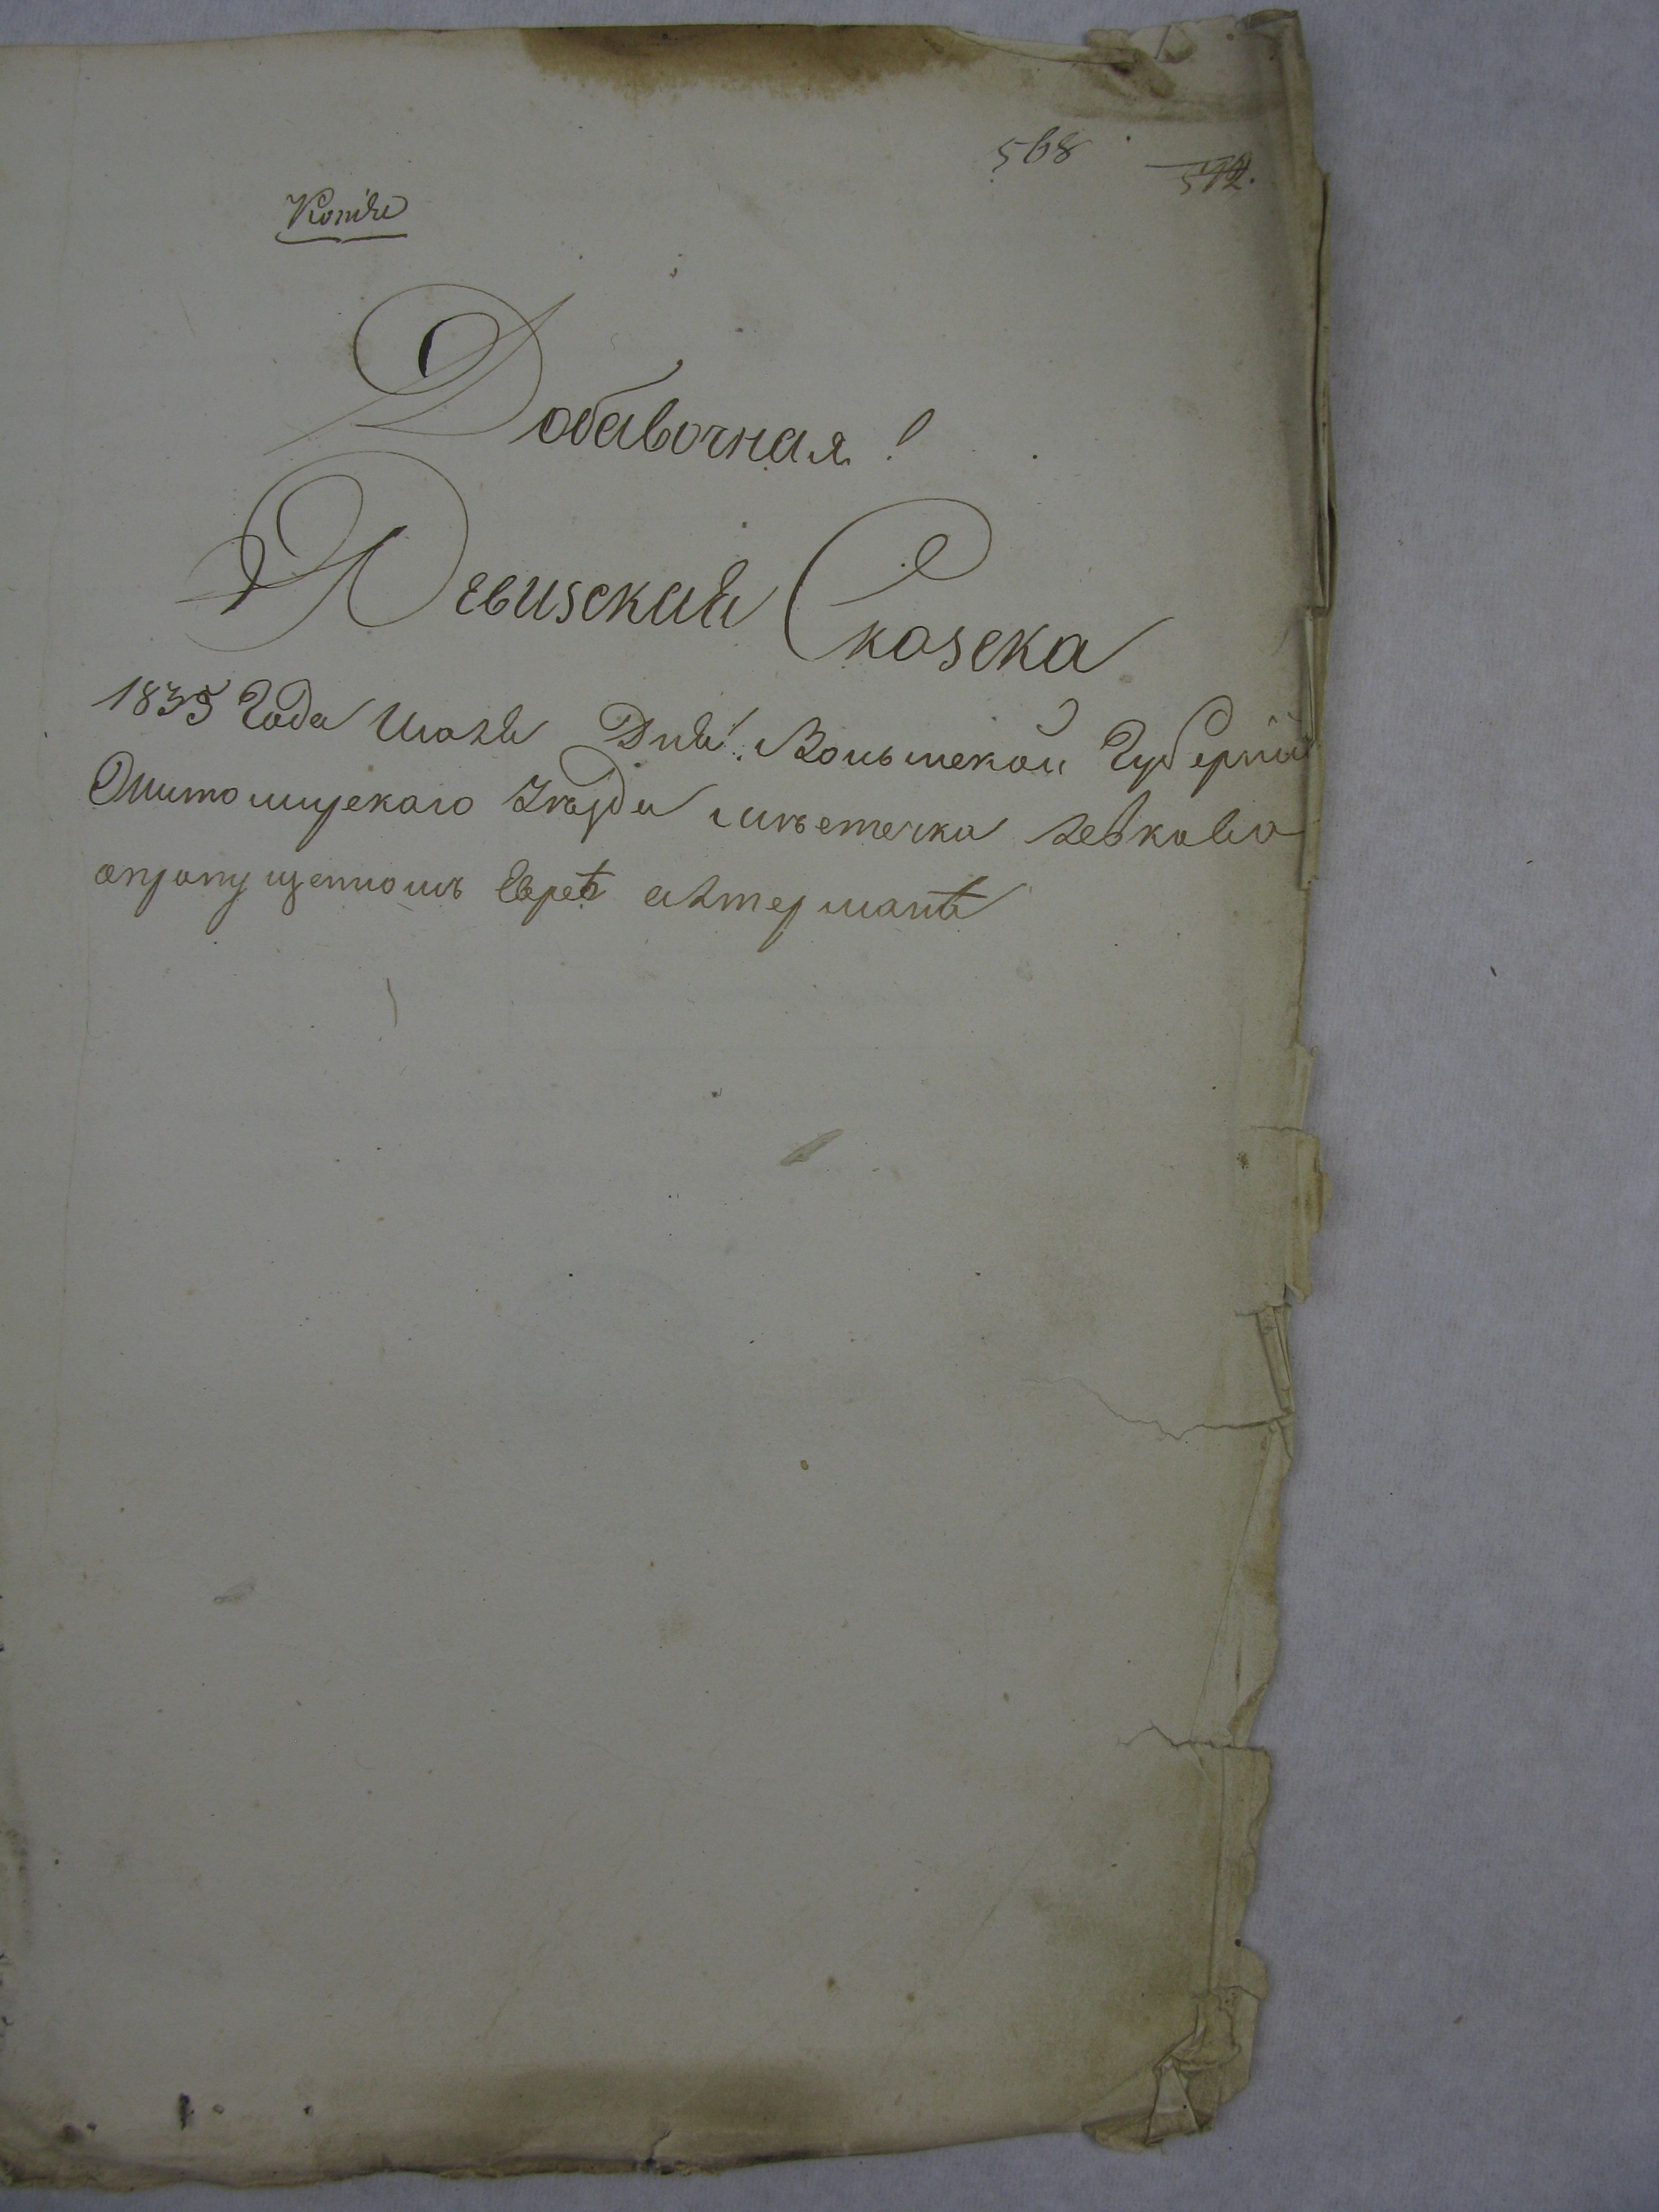 568 572.
Копія
Добавочная!
Ревизская Сказска
1835 Года Июля Дня! Волынской Губерніи
Житомирскаго Уѣзда мѣстечка Левкова
опропущенномъ Евреѣ